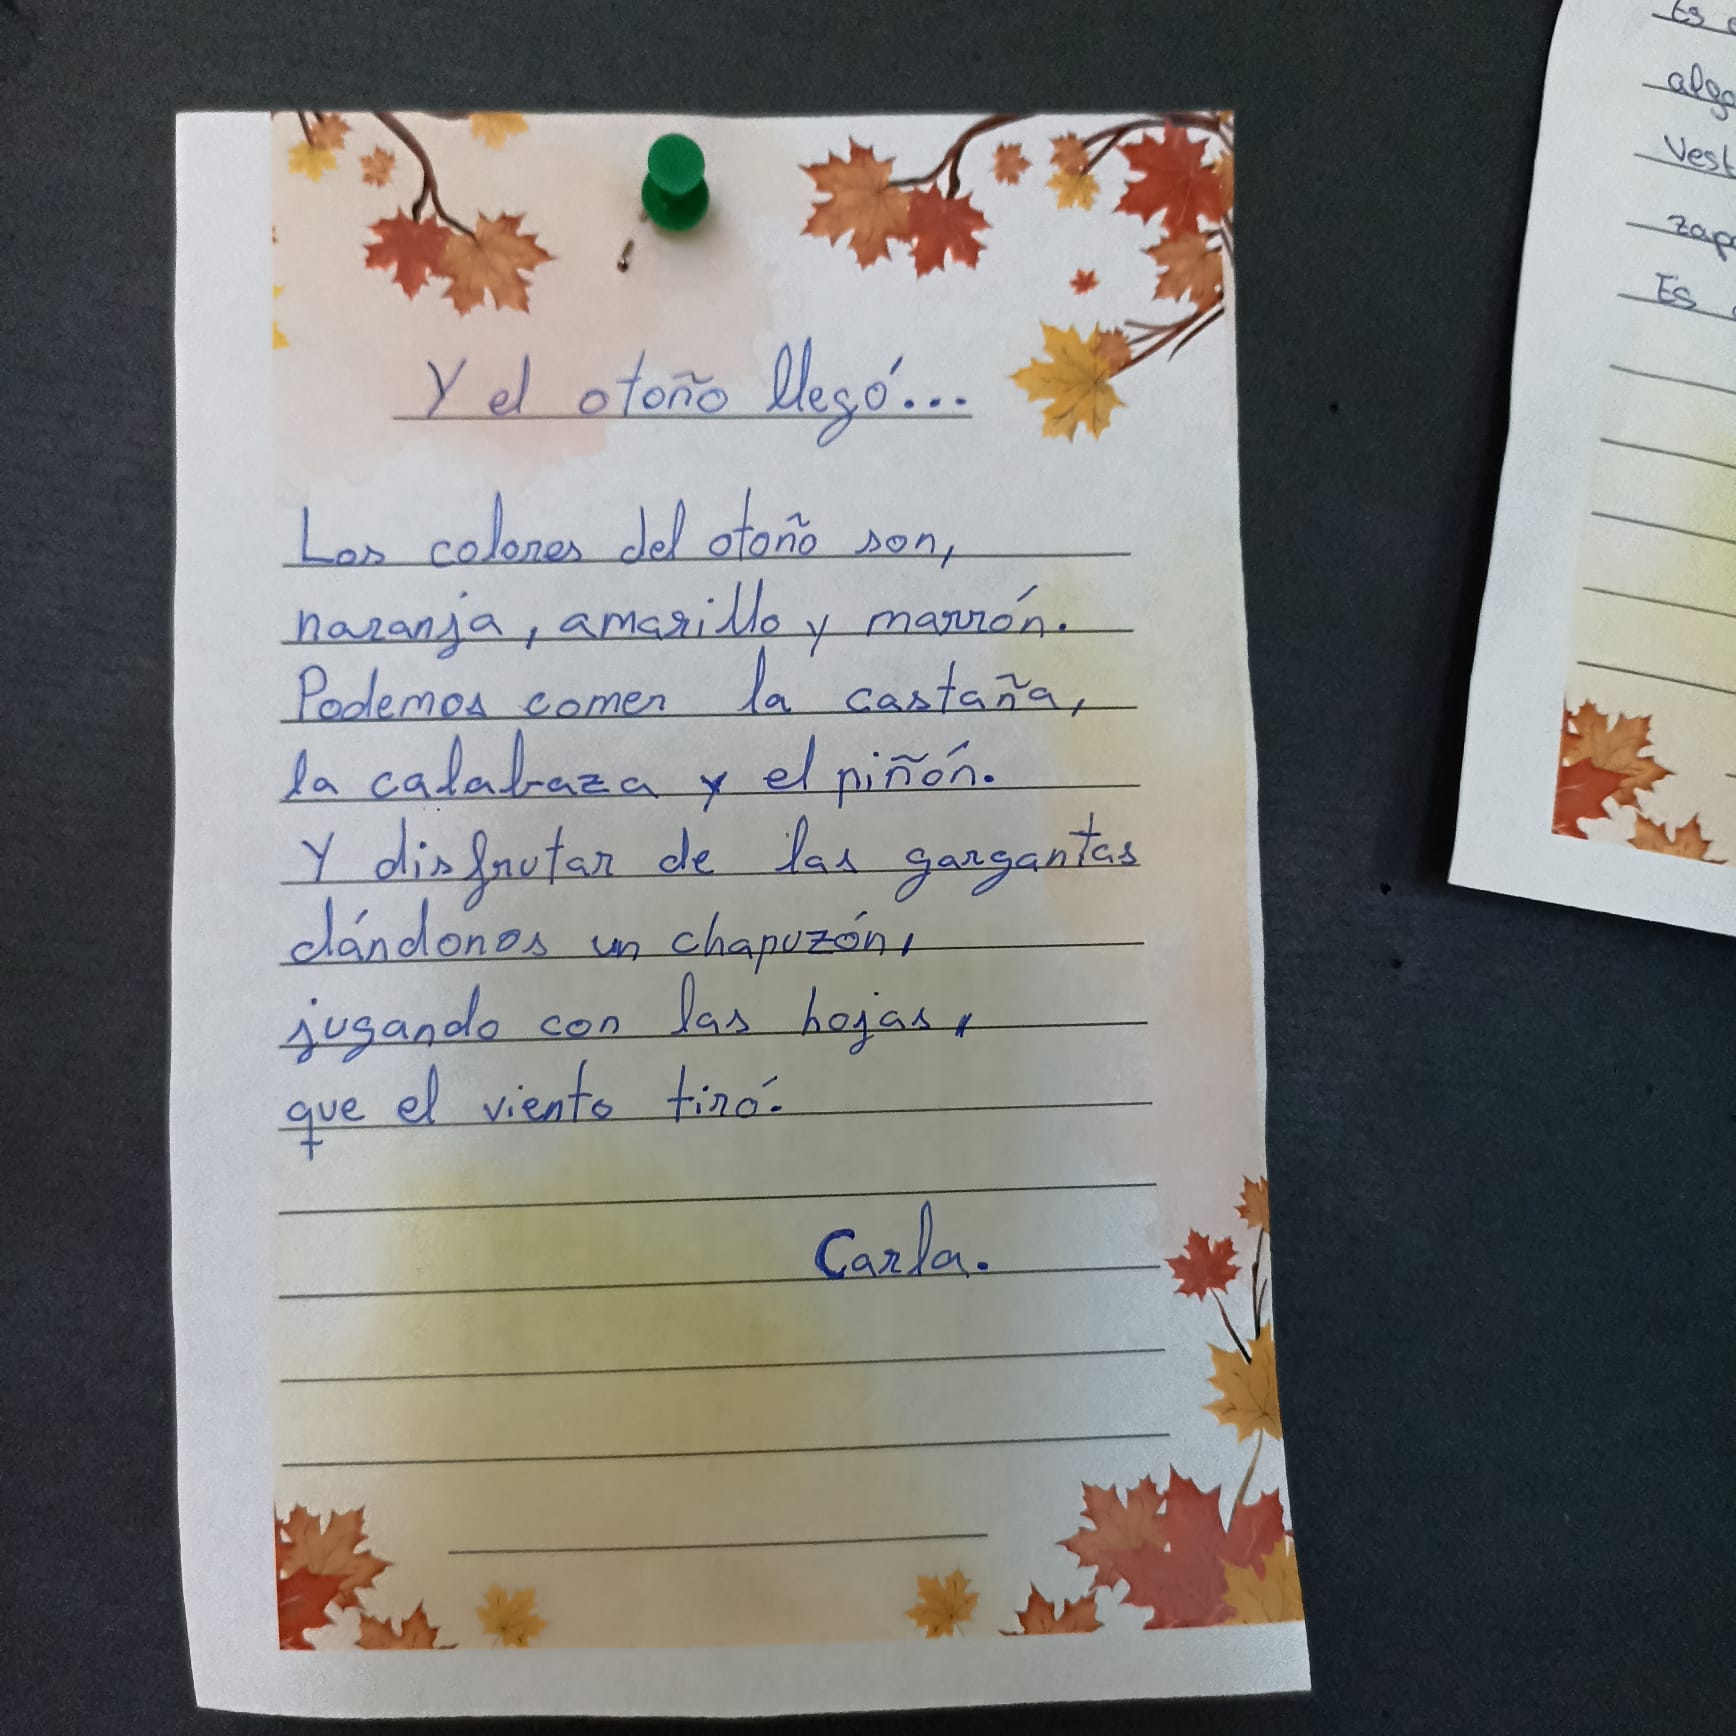 Y el otoño llegó...
Los colores del otoño son,
naranja, amarillo y marrón.
Podemos comer la castaña,
la calabaza y el piñón.
Y disfrutar de las gargantas
dándonos un chapuzón,
jugando con las hojas,
que el viento tiró.
Carla.
Es
Es